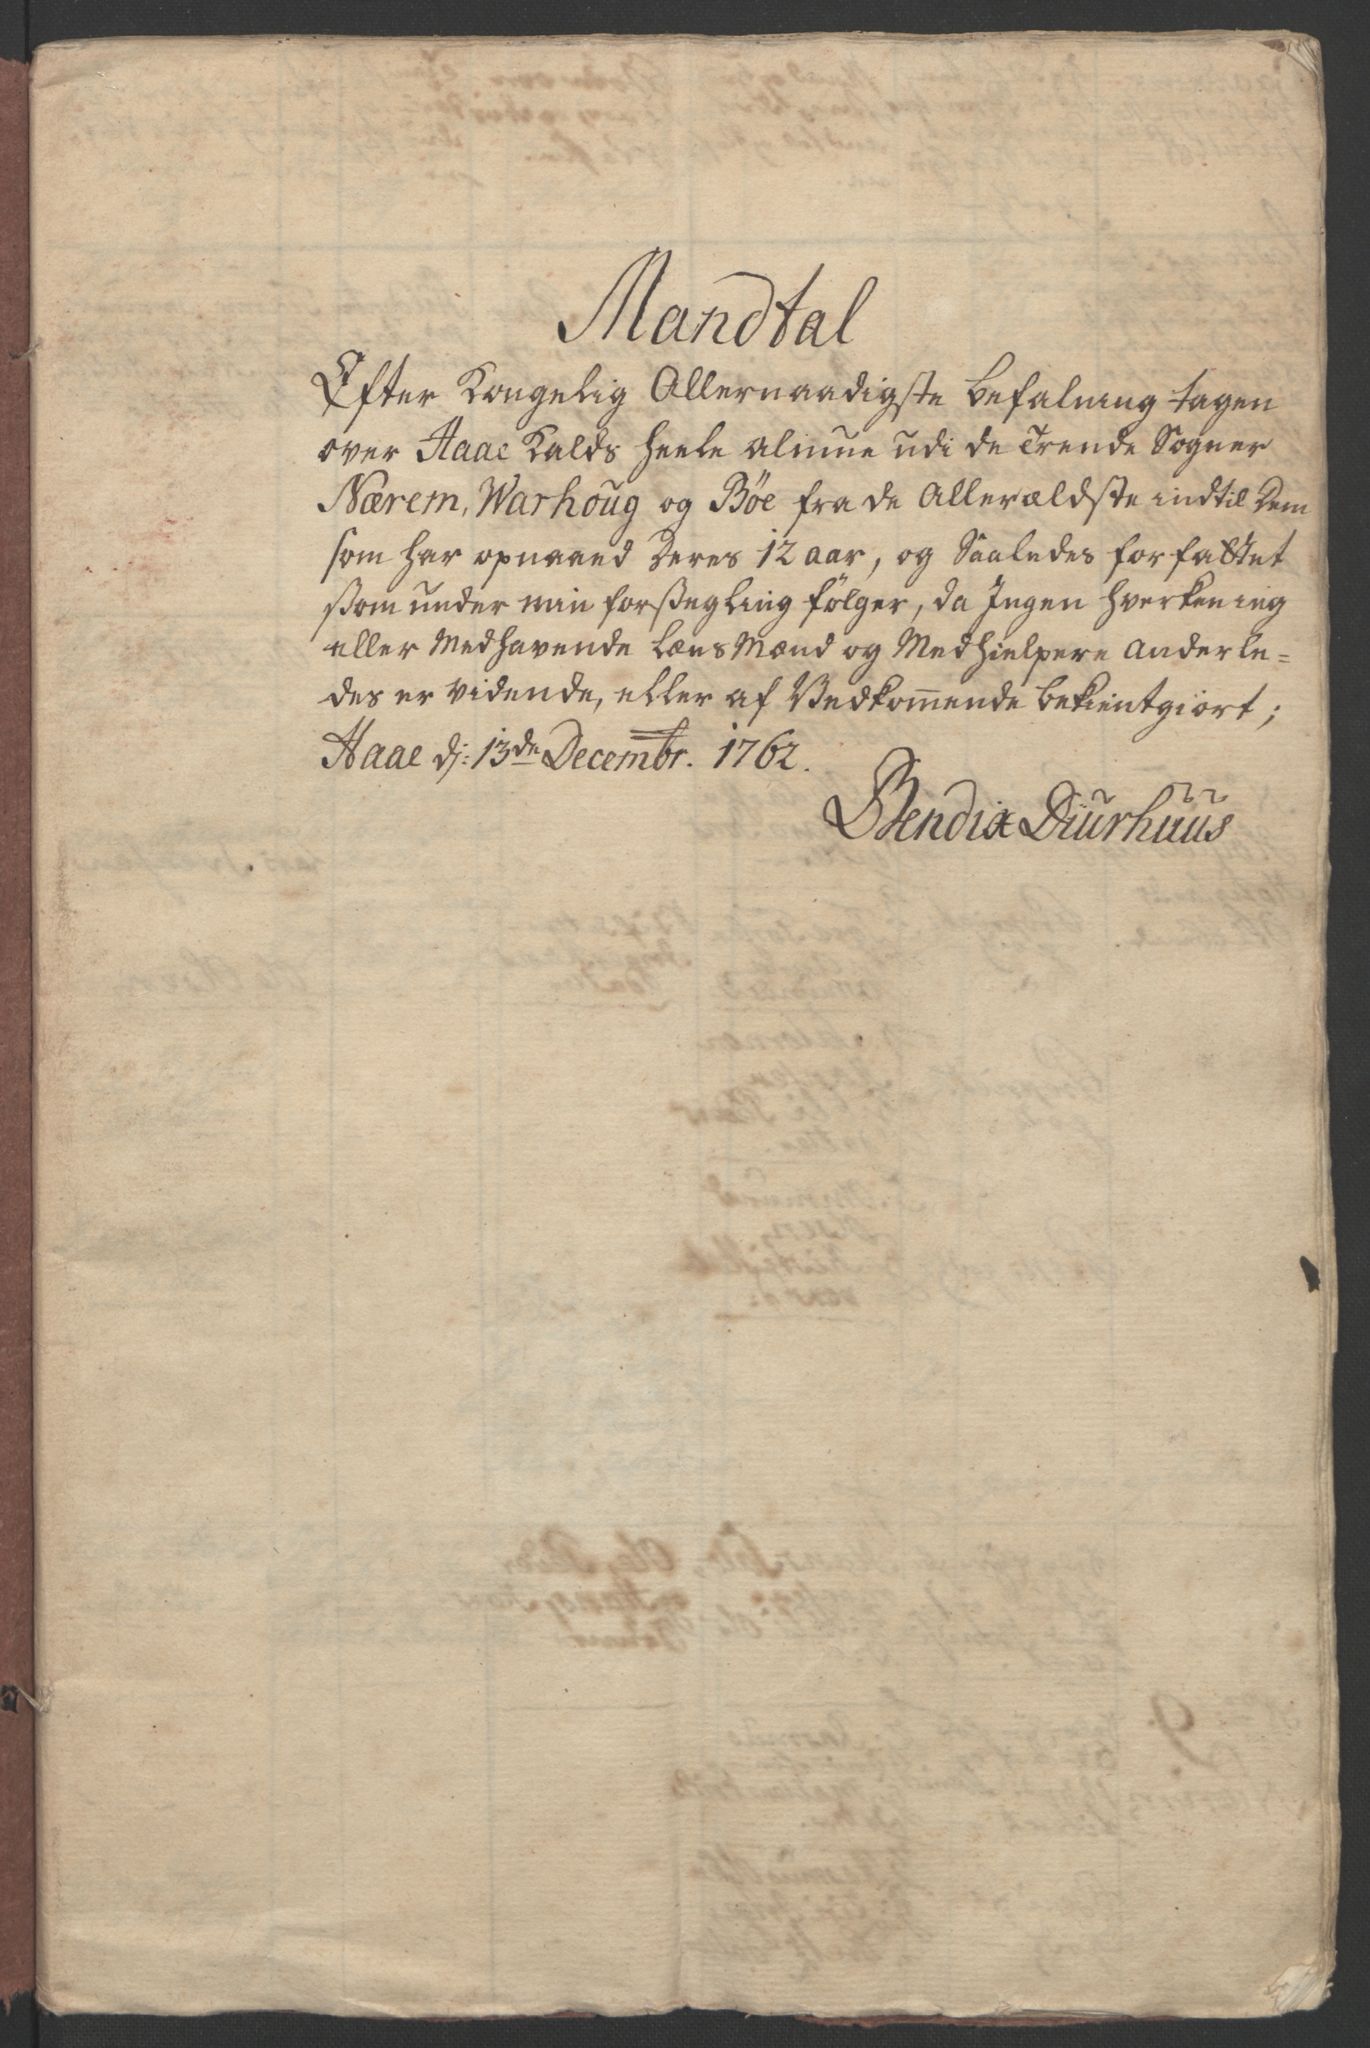 Mandtal
Efter Kongelig Allernaadigste befalning tagen
over Haae Kalds heele almue udi de Trende Sogner
Nærem, Warhoug og Böe fra de Allerældste indtil Dem
som har opnaaed Deres 12 aar, og Saaledes forfattet
som under min forsegling fölger, da Ingen hverken ieg
eller Medhavende Læns Mænd og Medhielpere anderle=
des er vidende, eller af Vedkom̅ende bekientgiort;
Haae dj: 13de Decembr. 1762.
Bendix Diurhuus